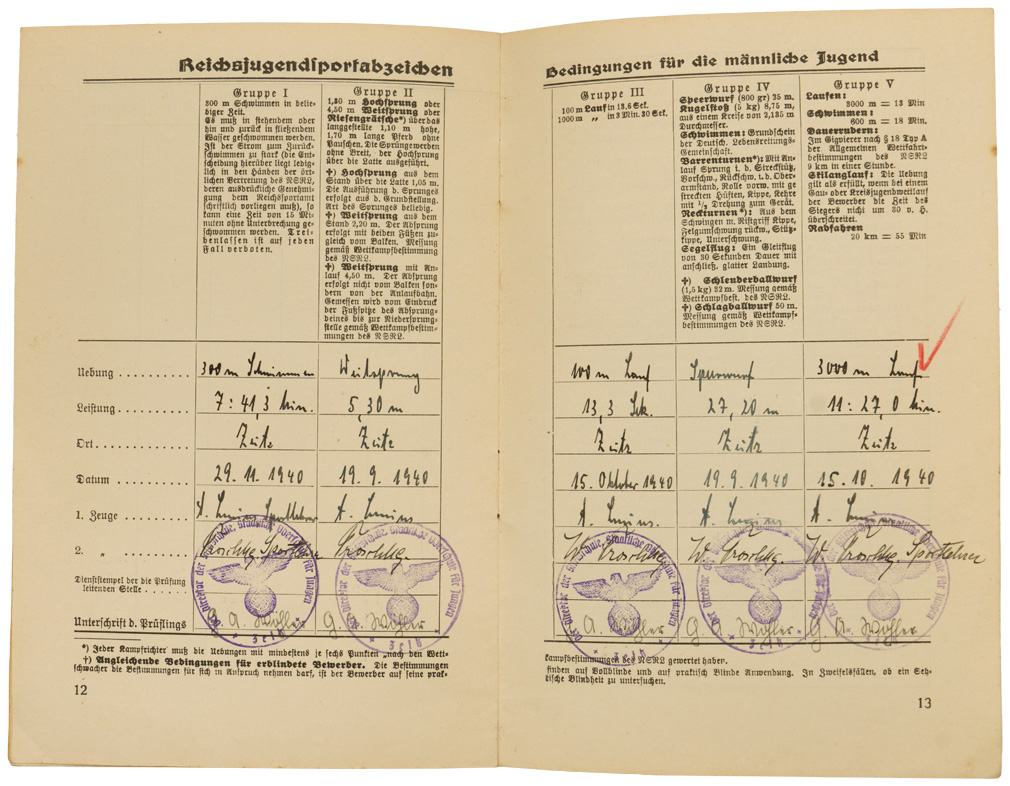 Reichsjugendsportabzeichen
Gruppe I
300 m Schwimmen in belie-
biger Zeit.
Es muß in stehendem oder
hin und zurück in fließendem
Wasser geschwommen werden.
Ist der Strom zum Zurück-
schwimmen zu stark (die Ent-
scheidung hierüber liegt ledig-
lich in den Händen der ört-
lichen Vertretung des NSRL,
deren ausdrückliche Genehmi-
gung dem Reichssportamt
schriftlich vorliegen muß), so
kann eine Zeit von 15 Mi-
nuten ohne Unterbrechung ge-
schwommen werden. Trei-
benlassen ist auf jeden
Fall verboten.
Gruppe II
1,30 m Hochsprung oder
4,50 m Weitsprung oder
Riesengrätsche*) über das
langgestellte 1,10 m hohe,
1,70 m lange Pferd ohne
Pauschen. Die Sprünge werden
ohne Brett, der Hochsprung
über die Latte ausgeführt.
†) Hochsprung aus dem
Stand über die Latte 1,05 m.
Die Ausführung d. Sprunges
erfolgt aus d. Grundstellung.
Art des Sprunges beliebig.
†) Weitsprung aus dem
Stand 2,20 m. Der Absprung
erfolgt mit beiden Füßen zu-
gleich vom Balken. Messung
gemäß Wettkampfbestimmung
des NSRL.
†) Weitsprung mit An-
lauf 4,50 m. Der Absprung
erfolgt nicht vom Balken son-
dern von der Anlaufbahn.
Gemessen wird vom Eindruck
der Fußspitze des Absprung-
beines bis zur Niedersprung-
stelle gemäß Wettkampfbestim-
mungen des NSRL.
Uebung 300 m Schwimmen Weitsprung
Leistung 7:41,3 Min. 5,30 m
Ort Zeitz Zeitz
Datum 29. 11. 1940 19. 9. 1940
1. Zeuge
2. "
Dienststempel der die Prüfung
leitenden Stelle
Unterschrift d. Prüflings G. A. Wöhler G. A. Wöhler
*) Jeder Kampfrichter muß die Uebungen mit mindestens je sechs Punkten nach den Wett-
†) Angleichende Bedingungen für erblindete Bewerber. Die Bestimmungen
schwächer die Bestimmungen für sich in Anspruch nehmen darf, ist der Bewerber auf seine prak-
12
Bedingungen für die männliche Jugend
Gruppe III
100 m Lauf in 13,6 Sek.
1000 m " in 3 Min. 30 Sek.
Gruppe IV
Speerwurf (800 gr) 25 m.
Kugelstoß (5 kg) 8,75 m,
aus einem Kreise von 2,135 m
Durchmesser.
Schwimmen: Grundschein
der Deutsch. Lebensrettungs-
Gemeinschaft.
Barrenturnen*): Mit An-
lauf Sprung i. d. Streckstütz,
Vorschw., Rückschw. i. d. Ober-
armstand, Rolle vorw. mit ge
streckten Hüften, Kippe, Kehre
mit 1/2 Drehung zum Gerät.
Reckturnen*): Aus dem
Schwingen m. Ristgriff Kippe,
Felgumschwung rückw., Sitz-
kippe, Unterschwung.
Segelflug: Ein Gleitflug
von 30 Sekunden Dauer mit
anschließ. glatter Landung.
†) Schlenderballwurf
(1,5 kg) 32 m. Messung gemäß
Wettkampfbest. des NSRL.
†) Schlagballwurf 50 m.
Messung gemäß Wettkampf-
bestimmungen des NSRL.
Gruppe V
Laufen:
3000 m = 13 Min
Schwimmen:
600 m = 18 Min.
Bauerrudern:
Im Gigvierer nach § 18 Typ A
der Allgemeinen Wettfahrt-
bestimmungen des NSRL
9 km in einer Stunde.
Skilanglauf: Die Uebung
gilt als erfüllt, wenn bei einem
Gau- oder Kreisjugendwettlauf
der Bewerber die Zeit des
Siegers nicht um 30 v. H.
überschreitet.
Radfahren
20 km = 55 Min
100 m Lauf Speerwurf 3000 m Lauf
13,3 Sek. 27,20 m 11:27,0 Min.
Zeitz Zeitz Zeitz
15. Oktober 1940 19. 9. 1940 15. 10. 1940
G. A. Wöhler G. A. Wöhler G. A. Wöhler
kampfbestimmungen des NSRL gewertet haben.
finden auf Vollblinde und auf praktisch Blinde Anwendung. In Zweifelsfällen, ob ein Seh-
tische Blindheit zu untersuchen.
13